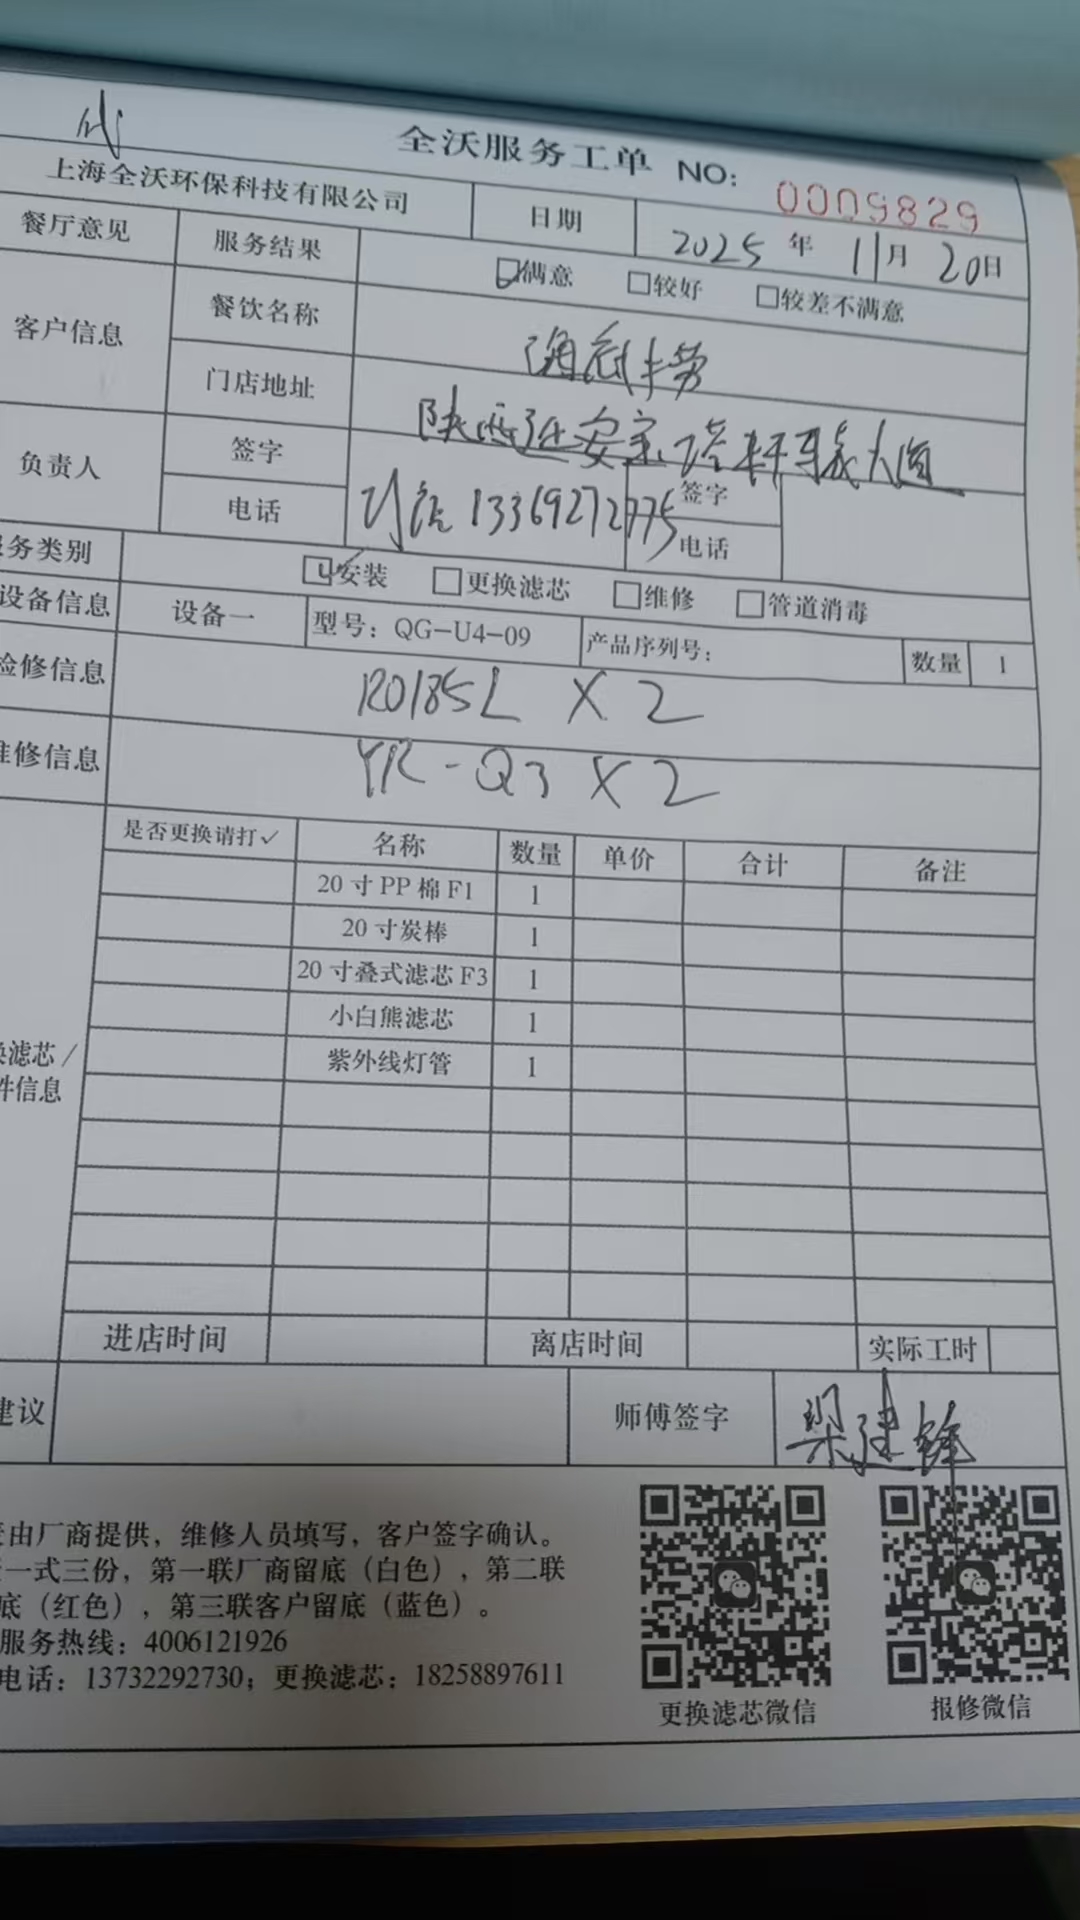 全沃服务工单 NO: 0009829
上海全沃环保科技有限公司 日期 2025年 11月 20日
餐厅意见 服务结果 满意 较好 较差不满意
客户信息 餐饮名称 海底捞
门店地址 陕西延安宝塔 大道
负责人 签字 签字
电话 13369272775 电话
务类别 安装 更换滤芯 维修 管道消毒
设备信息 设备一 型号: QG-U4-09 产品序列号: 数量 1
检修信息 RO185L X 2
维修信息 YR-Q3 X 2
是否更换请打✓ 名称 数量 单价 合计 备注
20寸PP棉F1 1
20寸炭棒 1
20寸叠式滤芯F3 1
小白熊滤芯 1
紫外线灯管 1
换滤芯/
件信息
进店时间 离店时间 实际工时
建议 师傅签字 梁建锋
由厂商提供，维修人员填写，客户签字确认。
一式三份，第一联厂商留底（白色），第二联
底（红色），第三联客户留底（蓝色）。
服务热线：4006121926
电话：13732292730；更换滤芯：18258897611
更换滤芯微信 报修微信